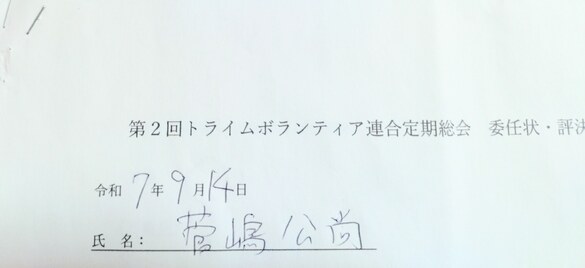 第2回トライムボランティア連合定期総会　委任状・評決
令和 7年 9月14日
氏　名： 菅嶋 公尚